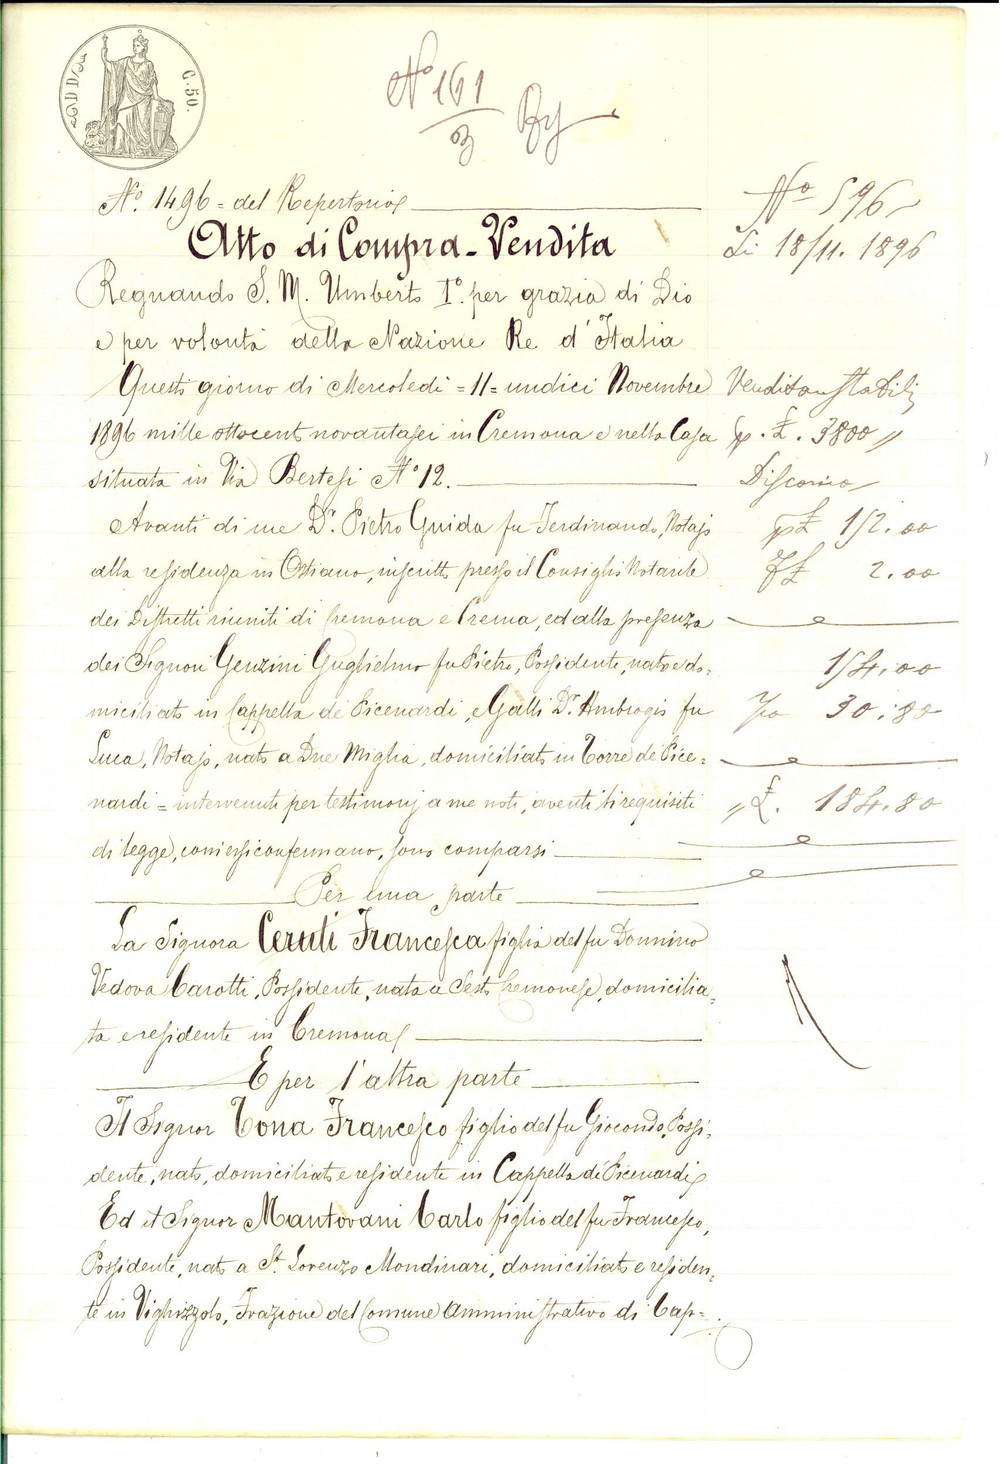 C. 50.
N.º 161
3
N.º 1496 = del Repertorio
Atto di Compra-Vendita
Regnando S. M. Umberto Iº. per grazia di Dio
e per volontà della Nazione Re d'Italia
Questo giorno di Mercoledì = 11 = undici Novembre
1896 mille ottocento novantasei in Cremona e nella Casa
situata in Via Bertesi Nº 12.
Avanti di me Dr. Pietro Guida fu Ferdinando, Notajo
alla residenza in Ostiano, inscritto presso il Consiglio Notarile
dei Distretti riuniti di Cremona e Crema, ed alla presenza
dei Signori Genzini Guglielmo fu Pietro, Possidente, nato e do-
miciliato in Cappella de' Picenardi, e Galli Dr. Ambrogio fu
Luca, Notajo, nato a Due Miglia, domiciliato in Torre de' Pice=
nardi = intervenuti per testimonj a me noti, aventi li requisiti
di legge, com'essi confermano, sono comparsi
Per una parte
La Signora Ceruti Francesca figlia del fu Donnino
Vedova Carotti, Possidente, nata a Sesto Cremonese, domicilia=
ta e residente in Cremona
E per l'altra parte
Il Signor Tona Francesco figlio del fu Giocondo, Possi=
dente, nato, domiciliato e residente in Cappella de' Picenardi
Ed il Signor Mantovani Carlo figlio del fu Francesco,
Possidente, nato a St. Lorenzo Mondinari, domiciliato e residen=
te in Vighizzolo, Frazione del Comune Amministrativo di Cap=
Nº 596
Li 18/11. 1896
Vendita Stabili
p. £. 3800 "
£ 152.00
£ 2.00
154.00
30.80
" £. 184.80